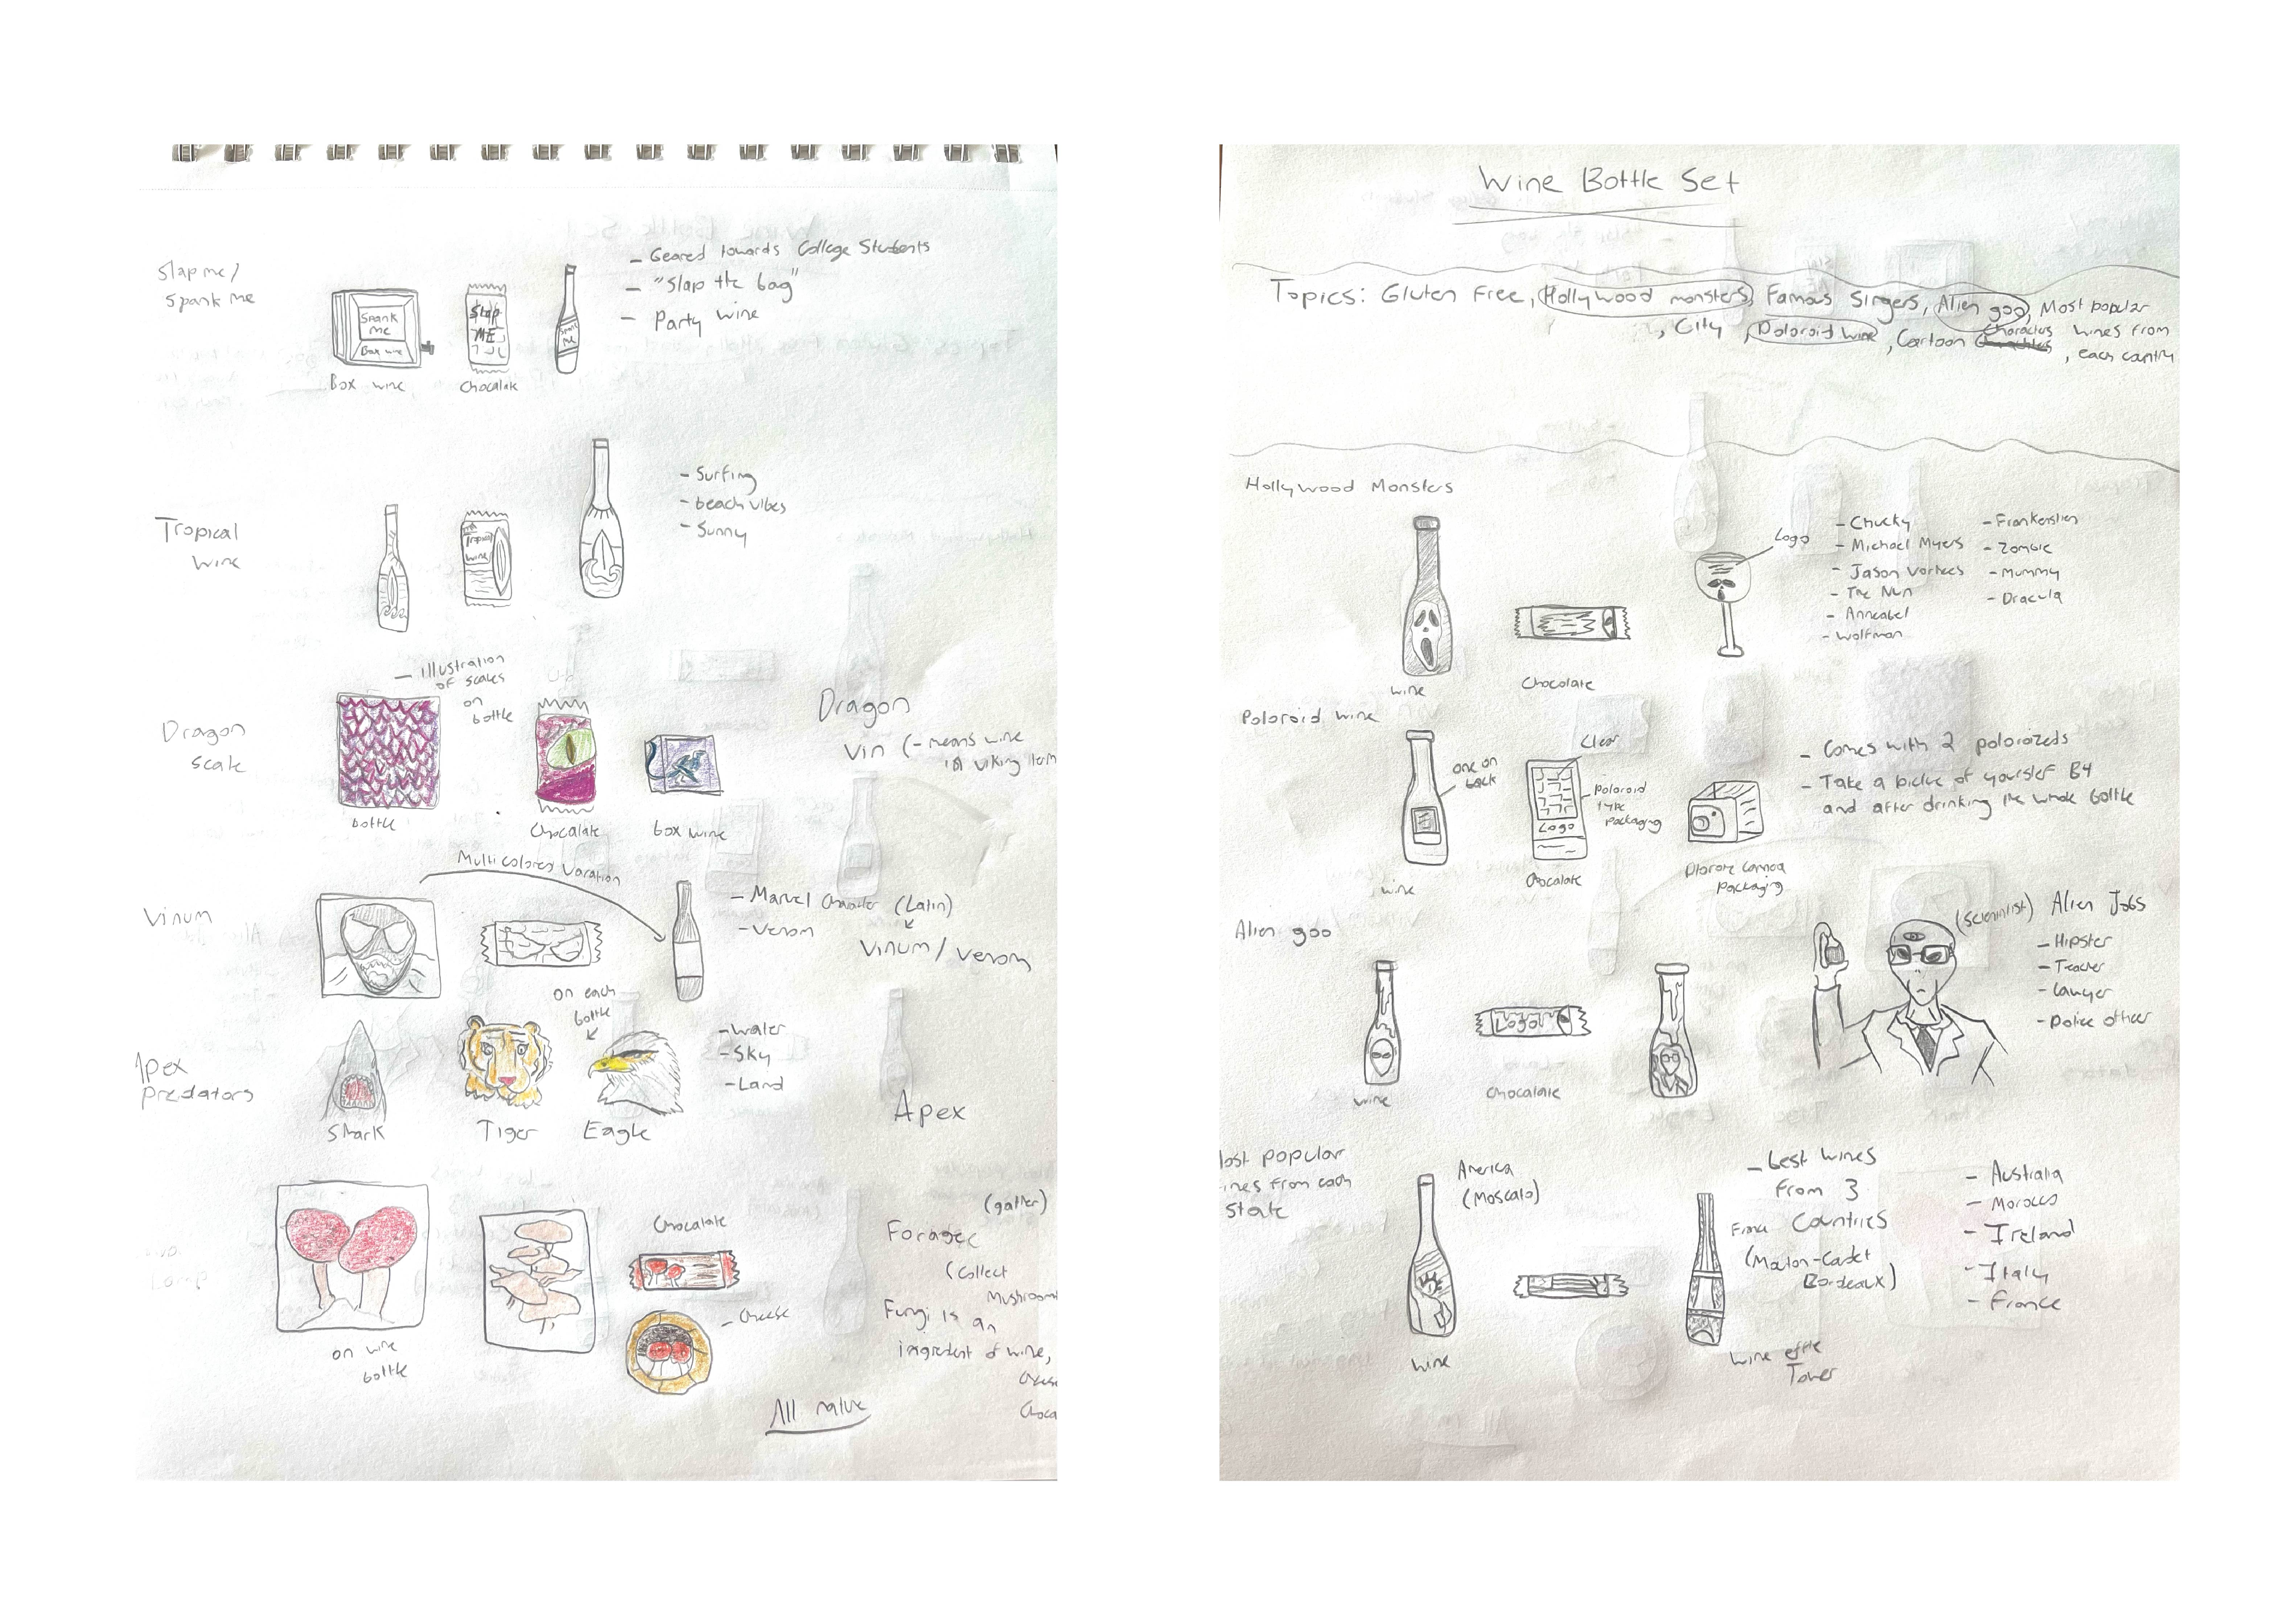 Slap me /
Spank me
Spank
Me
Box wine
Box wine
Slap
ME
Chocalate
Spank
Me
- Geared towards College Students
- "Slap the bag"
- Party wine
Tropical
Wine
Tropical
Wine
- Surfing
- beach vibes
- Sunny
Dragon
Scale
- illustration
of scales
on
bottle
bottle
Chocalate
box wine
Dragon
Vin (- means wine
in viking term
Vinum
Multicolored Varation
- Marvel Character (Latin)
- Venom
Vinum / Venom
Apex
Predators
on each
bottle
Shark
Tiger
Eagle
- Water
- Sky
- Land
Apex
on wine
bottle
Chocalate
- Cheese
(gather)
Forager
(Collect
Mushroom
Fungi is an
ingredient of wine,
Chees
Choca
All native
Wine Bottle Set
Topics: Gluten Free, Hollywood monsters, Famous Singers, Alien goo, Most popular
, City, Poloroid wine, Cartoon Characters, Wines from
each country
Hollywood Monsters
wine
Chocolate
Logo
- Chucky
- Michael Myers
- Jason Vorhees
- The Nun
- Anneabel
- Wolfman
- Frankenstien
- Zombie
- Mummy
- Dracula
Poloroid wine
wine
one on
back
Clear
Poloroid
type
packaging
Logo
Chocalate
Packaging
- Comes with 2 polorozeds
- Take a picture of yourself B4
and after drinking the whole bottle
Alien goo
wine
Logo
Chocalate
(Scientist) Alien Jobs
- Hipster
- Teacher
- Lawyer
- Police officer
Most popular
wines from each
State
America
(Moscato)
wine
- best wines
from 3
Countries
France
(Mouton-Cadet
Bordeaux)
Wine effle
Tower
- Australia
- Morocco
- Ireland
- Italy
- France